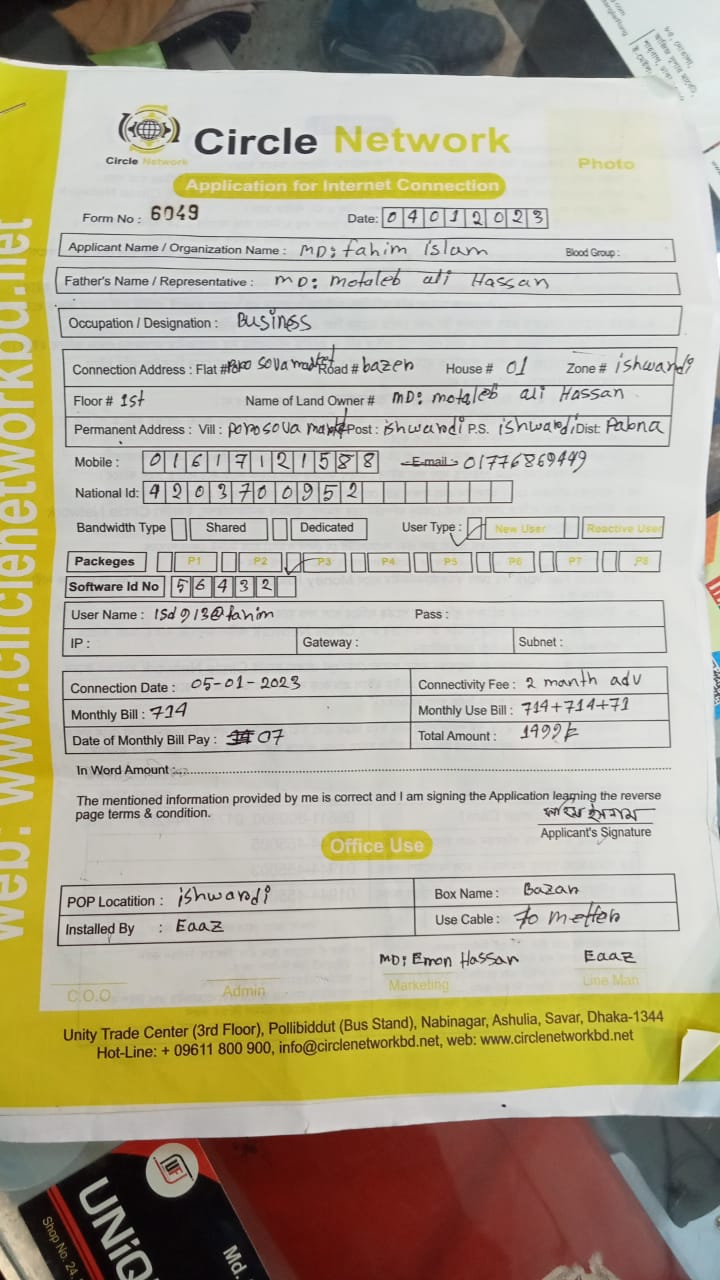 Circle Network
Circle Network
Photo
Application for Internet Connection
Form No : 6049 Date: 04012023
Applicant Name / Organization Name : MD: fahim islam Blood Group :
Father's Name / Representative : MD: motaleb ali Hassan
Occupation / Designation : Business
Connection Address : Flat # Poro Sova market Road # bazer House # 01 Zone # ishwardi
Floor # 1st Name of Land Owner # MD: motaleb ali Hassan
Permanent Address : Vill : porosova market Post : ishwardi P.S. ishwardi Dist: Pabna
Mobile : 01617121588 E-mail : 01776869449
National Id: 4203700952
Bandwidth Type Shared Dedicated User Type : New User Reactive User
Packeges P1 P2 P3 P4 P5 P6 P7 P8
Software Id No 56432
User Name : isd913@fahim Pass :
IP : Gateway : Subnet :
Connection Date : 05-01-2023 Connectivity Fee : 2 manth adv
Monthly Bill : 714 Monthly Use Bill : 714+714+71
Date of Monthly Bill Pay : 07 Total Amount : 1499
In Word Amount :
The mentioned information provided by me is correct and I am signing the Application learning the reverse
page terms & condition.
Applicant's Signature
Office Use
POP Locatition : ishwardi Box Name : Bazar
Installed By : Eaaz Use Cable : 70 metter
MD: Emon Hassan Eaaz
C.O.O Admin Marketing Line Man
Unity Trade Center (3rd Floor), Pollibiddut (Bus Stand), Nabinagar, Ashulia, Savar, Dhaka-1344
Hot-Line: + 09611 800 900, info@circlenetworkbd.net, web: www.circlenetworkbd.net
web: www.circlenetworkbd.net
UF
Shop No. 24,
Md.